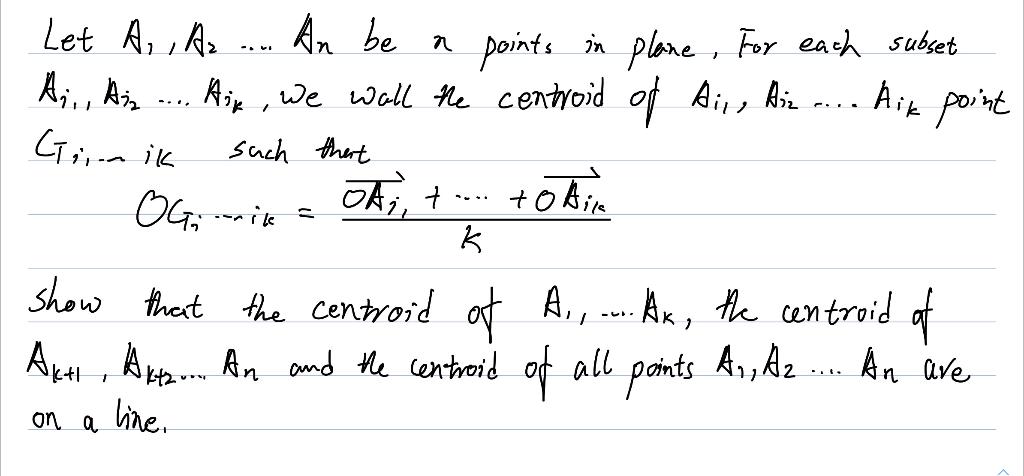 Let A1, A2 .... An be n points in plane, For each subset
Ai1, Ai2 .... Aik, we wall the centroid of Ai1, Ai2 .... Aik point
Gi1...ik such that
OGi...ik = (OAi1 + .... + OAik) / k
show that the centroid of A1, .... Ak, the centroid of
Ak+1, Ak+2.... An and the centroid of all points A1, A2 .... An are
on a line.